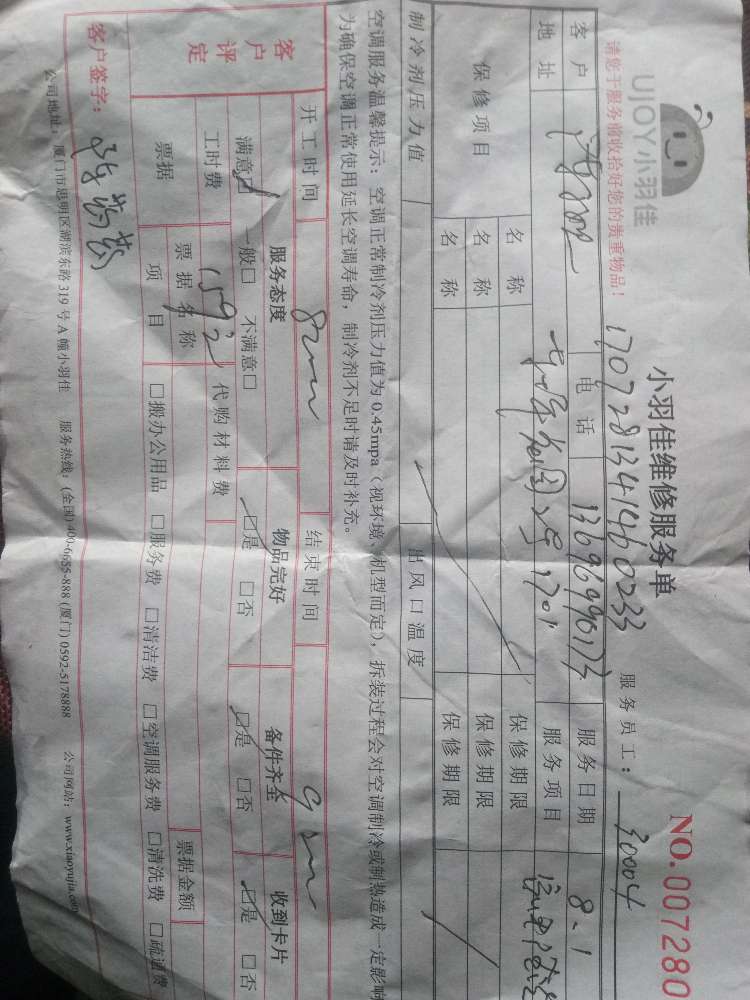 UJOY小羽佳
小羽佳维修服务单
NO.007280
请您于服务前收拾好您的贵重物品！
1707281341460233
服务员工：30004
客户 电话 13696990173 服务日期 8.1
地址 服务项目
保修项目 名称 保修期限
名称 保修期限
名称 保修期限
制冷剂压力值 出风口温度
空调服务温馨提示：空调正常制冷剂压力值为0.45mpa（视环境、机型而定），拆装过程会对空调制冷或制热造成一定影响
为确保空调正常使用延长空调寿命，制冷剂不足时请及时补充。
客户评定
开工时间 结束时间
服务态度 物品完好 备件齐全 收到卡片
满意☑ 一般□ 不满意□ ☑是 □否 ☑是 □否 ☑是 □否
工时费 159元 代购材料费
票据 票据名称 票据金额
项目 □搬办公用品 □服务费 □清洁费 □空调服务费 □清洗费 □疏通费
客户签字：
公司地址：厦门市思明区湖滨东路319号A幢小羽佳 服务热线：(全国)400-6655-888 (厦门) 0592-5178888 公司网站：www.xiaoyujia.com